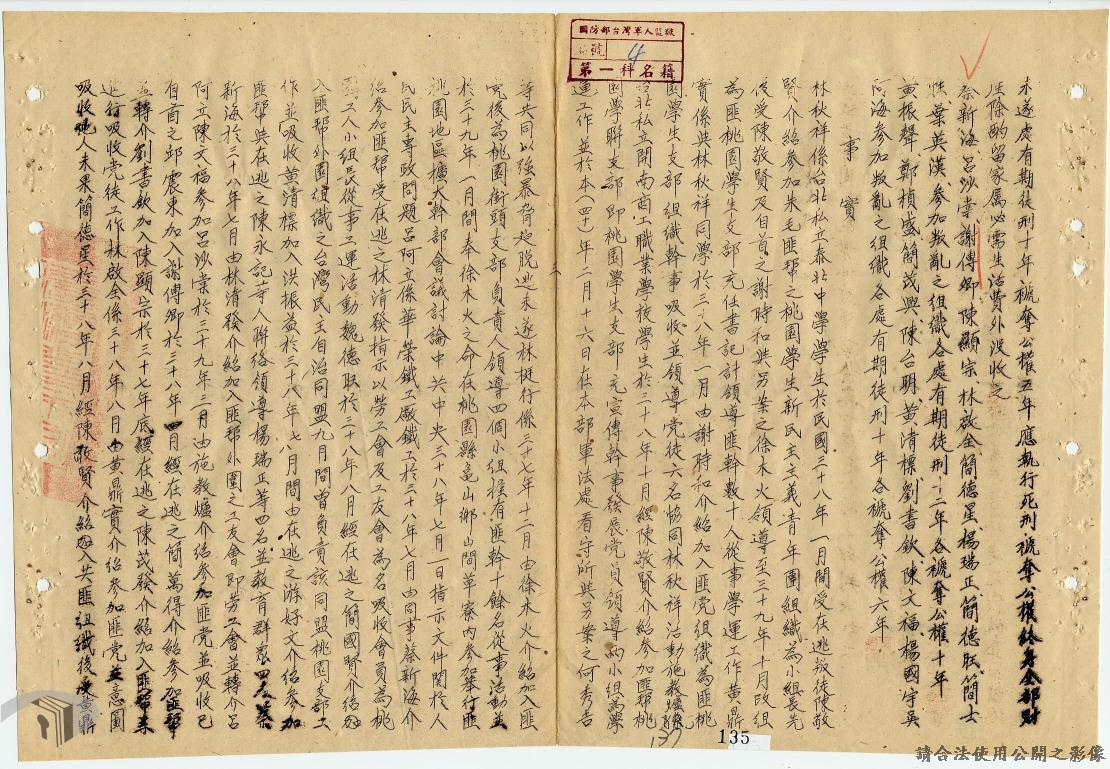 國防部台灣軍人監獄
號
4
第一科名籍
未遂處有期徒刑十年褫奪公權五年應執行死刑褫奪公權終身全部財
產除酌留家屬必需生活費外沒收之
蔡新海呂沙棠謝傳卿陳顯宗林啟全簡德星楊瑞正簡德旺簡士
性葉英漢參加叛亂之組織各處有期徒刑十二年各褫奪公權十年
黃振聲鄭楨盛簡茂興陳台明黃清標劉書欽陳文福楊國宇吳
阿海參加叛亂之組織各處有期徒刑十年各褫奪公權六年
事實
林秋祥係台北私立泰北中學學生於民國三十八年一月間受在逃叛徒陳敬
賢介紹參加朱毛匪幫之桃園學生新民主主義青年團組織為小組長先
後受陳敬賢及自首之謝時和與另案之徐木火領導至三十九年十月改組
為匪桃園學生支部充任書記計領導匪幹數十人從事學運工作黃鼎
實係與林秋祥同學於三十八年一月由謝時和介紹加入匪黨組織為匪桃
園學生支部組織幹事吸收並領導黨徒六名協同林秋祥活動施教爐係
台北私立開南商工職業學校學生於三十八年十月經陳敬賢介紹參加匪幫桃
園學聯支部即桃園學生支部充宣傳幹事發展黨員領導內小組為學
運工作並於本(四十)年二月十六日在本部軍法處看守所與另案之何秀吉
等共同以強暴脅迫脫逃未遂林挺行係三十七年十二月由徐木火介紹加入匪
黨後為桃園街頭支部負責人領導四個小組程有匪幹十餘名從事活動並
於三十九年一月間奉徐木火之命在桃園縣龜山鄉山間草寮內參加舉行匪
桃園地區擴大幹部會議討論中共中央三十八年七月一日指示文件關於人
民民主專政問題呂阿立係華榮鐵工廠鐵工於三十八年七月由同事蔡新海介
紹參加匪幫受在逃之林清發指示以勞工會及工友會為名吸收會員為桃
園工人小組長從事工運活動魏德旺於三十八年八月經在逃之簡國賢介紹
入匪幫外圍組織之台灣民主自治同盟九月間曾負責該同盟桃園支部工
作並吸收黃清標加入洪振益於三十八年七月間由在逃之游好文介紹參加
匪幫與在逃之陳永記等人聯絡領導楊瑞正等四名並教育群眾
新海於三十八年七月由林清發介紹加入匪幫外圍之工友會即勞工會並轉介呂
阿立陳文福參加呂沙棠於三十九年二月由施教爐介紹參加匪黨並吸收已
自首之邱震東加入謝傳卿於三十八年四月經在逃之簡萬得介紹參加匪幫
並轉介劉書欽加入陳顯宗於三十七年底經在逃之陳茂發介紹加入匪幫未
進行吸收黨徒工作林啟全係三十八年八月由黃鼎實介紹參加匪黨並意圖
吸收他人未果簡德星於三十八年八月經陳敬賢介紹加入共匪組織後受黃鼎
135
請合法使用公開之影像